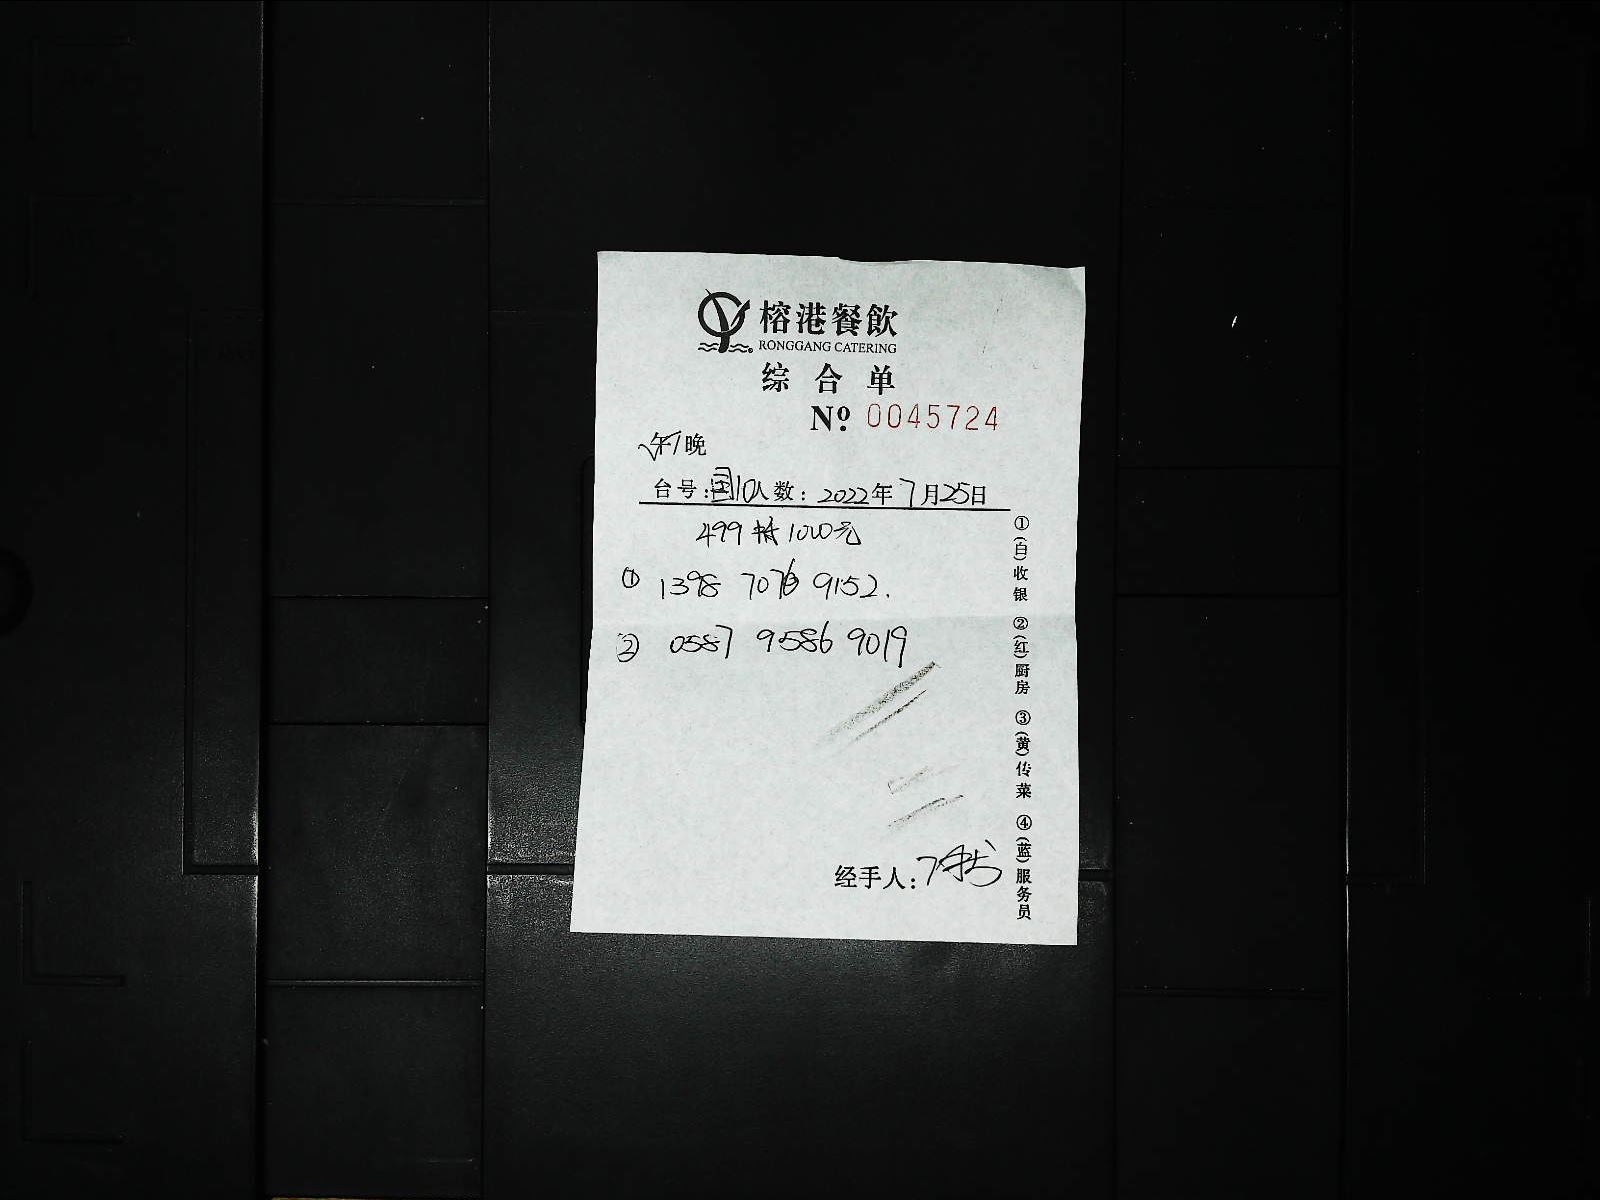 榕港餐飲
RONGGANG CATERING
综合单
№ 0045724
午/晚
台号:国10人数: 2022年7月25日
499抵1000元
① 1398 7076 9152.
② 0587 9586 9019
经手人:
①(白)收银 ②(红)厨房 ③(黄)传菜 ④(蓝)服务员